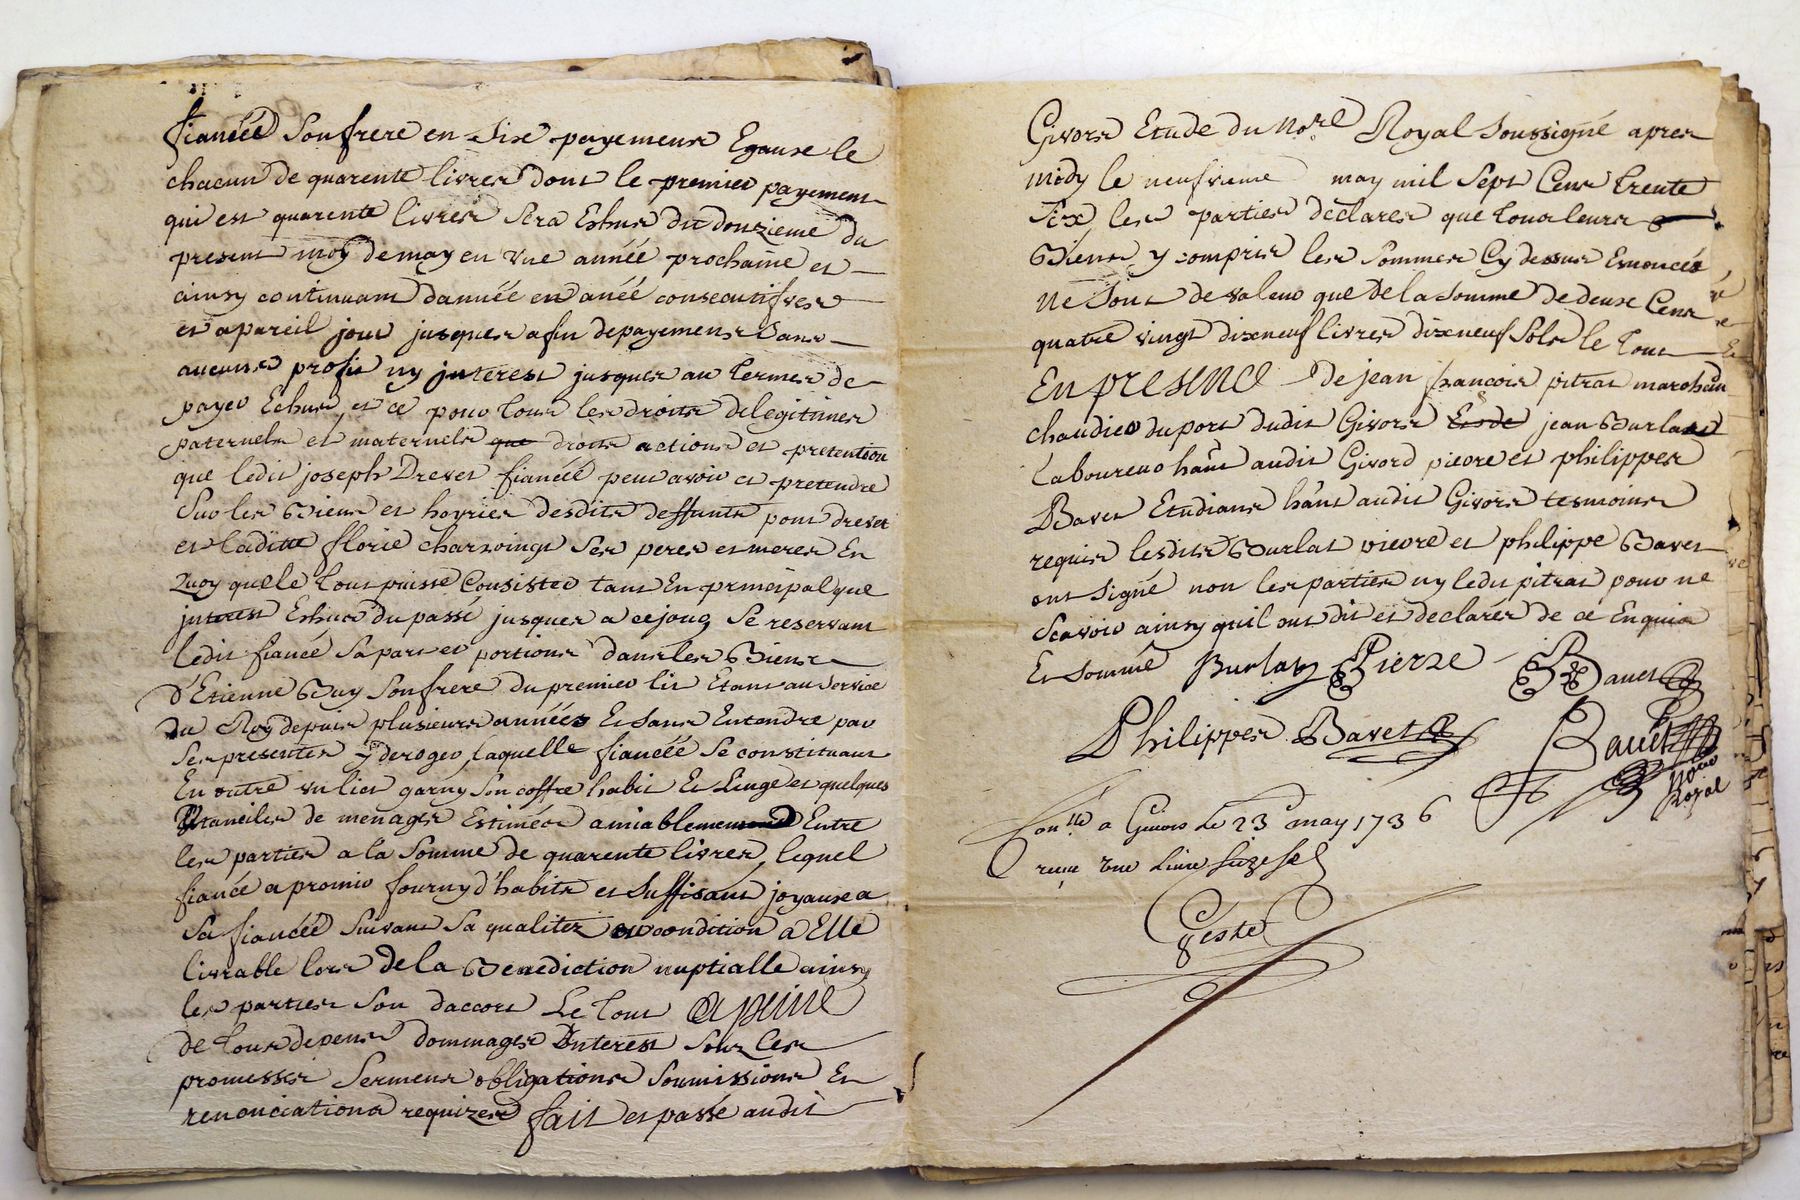 fiancéé Son frere en Six payemens Egaux le
chacun de quarente livres dont le premier payement
qui est quarente livres Sera Eshus du douzieme du
present moy de may en vne année prochaine et
ainsy continuant dannéé en anéé consecutifves
et apareil jour jusques a fin depayemens Sans
aucuns profit ny jnterest jusques au termes de
payer Echus, et ce pour tous les droits de legitimes
paternels et maternels que droits actions et pretention
que ledit joseph Drevet fiancéé peut avoir et pretendre
Sur les Biens et hoyries desdits deffunts pont drevet
et laditte florie charzoingt Ses peres et meres En
quoy quelle tout puisse Consister tant En principal que
jnterest Eshus du passé jusques a ce jour Se reservant
ledit fiancé Sa part et portions dans les Biens
d'Etienne Buy Son frere du premier lit Etant au Service
du Roy depuis plusieurs années Et Sans Entendre par
Ses presentes y deroger, laquelle fiancéé Se constituant
En outre vn lict garny Son coffre habit Et Linge et quelques
Vtanciles de menages Estimées amiablement Entre
les parties a la Somme de quarente livres, lequel
fiancé a promis fourny d'habits et Suffisant joyaux a
Sa fiancéé Suivant Sa qualitez et condition a Elle
livrable lors de la Benediction nuptialle ainsy
les parties Son daccort Le tout a peine
de tous depens dommages Interest Sous Ces
promesses Sermens obligations Soumissions Et
renonciations requizes fait et passé audit
Givors Etude du No.re Royal Soussigné apres
midy le neufvieme may mil Sept Cens trente
Six, les parties declares que tous leurs
Biens y compris les Sommes Cy dessus Enoncées
ne Sont de valeur que de la Somme de deux Cens
quatre vingt dixneuf livres dixneuf Sols le tout
En presence de jean francois pitrat marchand
chaudier du port dudit Givors Et de jean Burlat
Laboureur hant audit Givord pierre et philippes
Bavet Etudians hant audit Givors tesmoins
requis lesdits Burlat pierre et philippe Bavet
ont Signé non les parties ny ledit pitrat pour ne
Scavoir ainsy quil ont dit et declarés de ce Enquis
Et Sommé Burlat Pierre Bavet
Philippes Bavet Bavet
No.re Royal
Con.llé a Givors le 23 may 1736
reçu une Livre
Geste